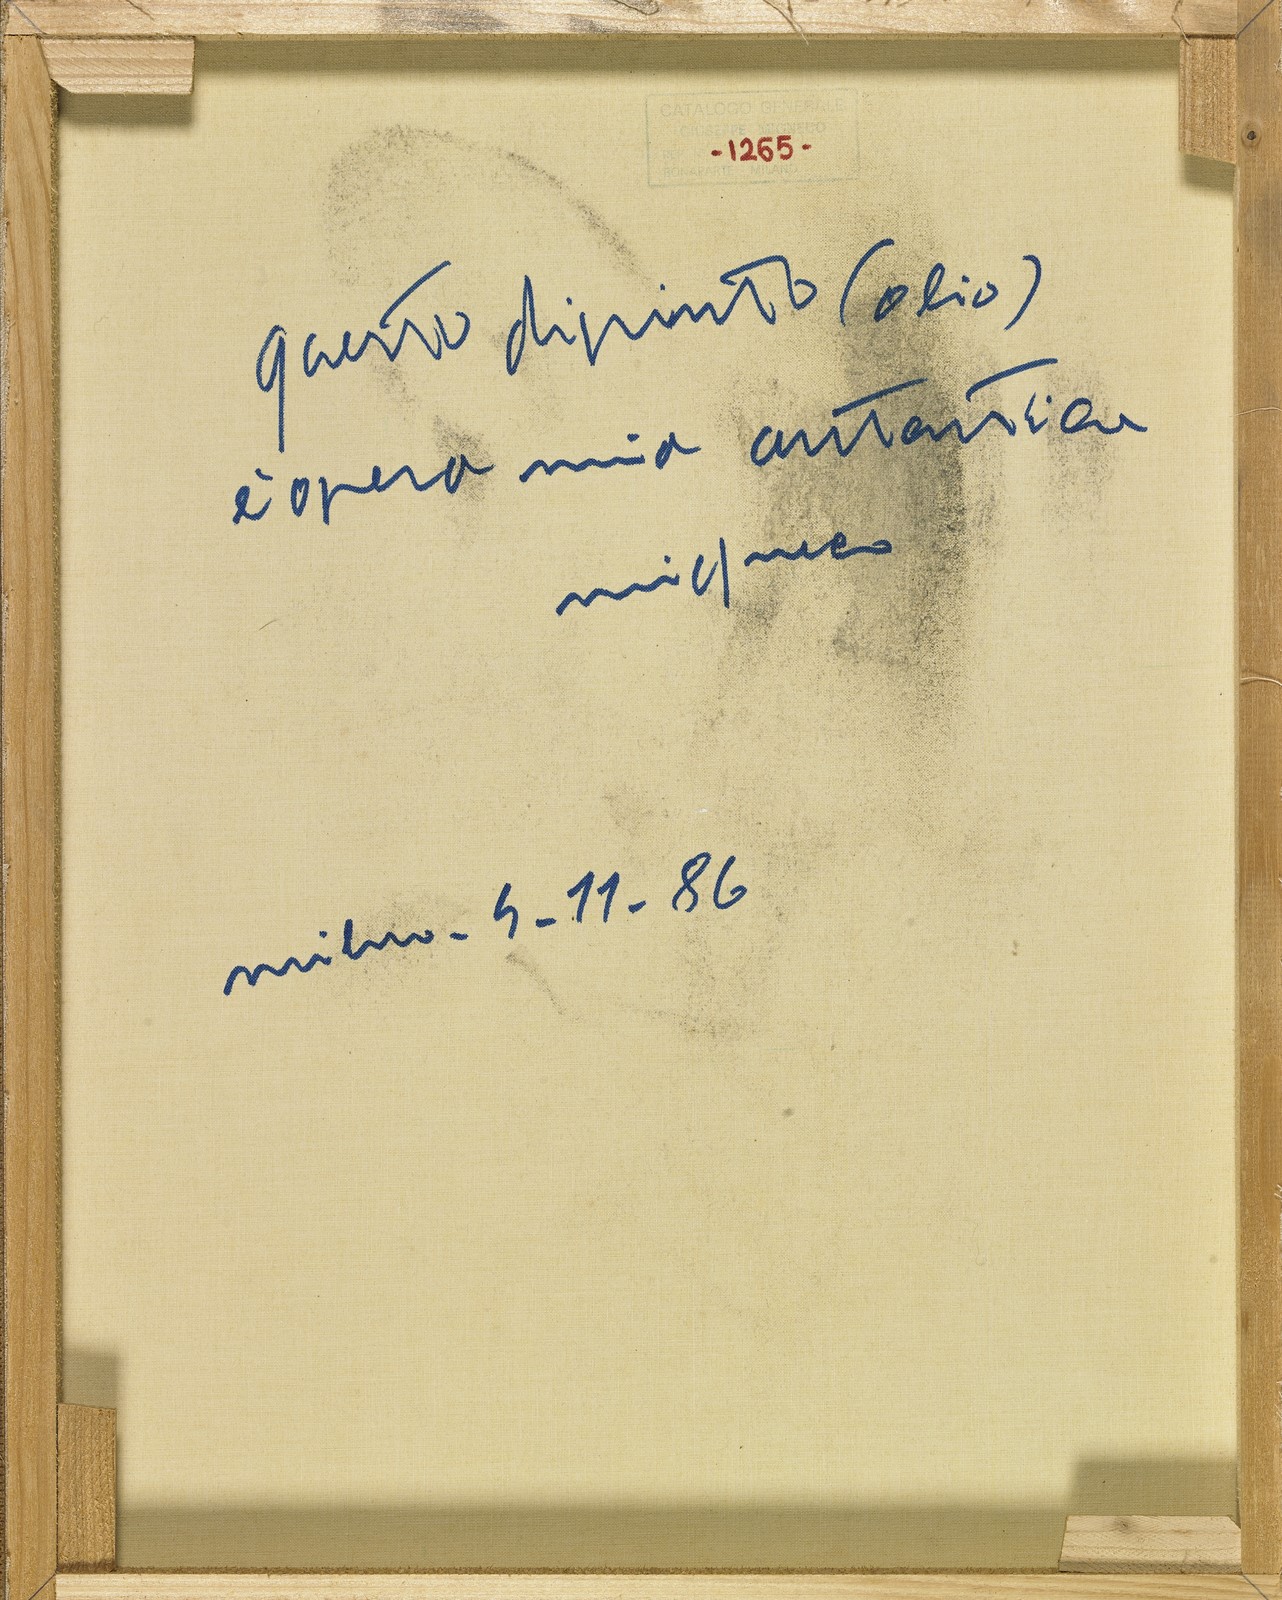 CATALOGO GENERALE
GIUSEPPE MIGNECO
-1265-
BONAPARTE MILANO
questo dipinto (olio)
è opera mia autentica
migneco
milano - 5-11-86